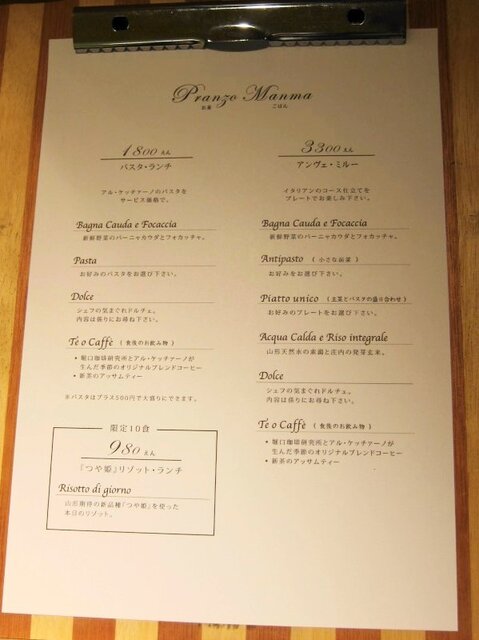 Pranzo Manma
お昼 ごはん
1800 えん
パスタ・ランチ
アル・ケッチァーノのパスタを
サービス価格で。
Bagna Cauda e Focaccia
新鮮野菜のバーニャカウダとフォカッチャ。
Pasta
お好みのパスタをお選び下さい。
Dolce
シェフの気まぐれドルチェ。
内容は係りにお尋ね下さい。
Té o Caffè (食後のお飲み物)
• 堀口珈琲研究所とアル・ケッチァーノが
生んだ季節のオリジナルブレンドコーヒー
• 新茶のアッサムティー
※パスタはプラス500円で大盛りにできます。
限定10食
980 えん
『つや姫』リゾット・ランチ
Risotto di giorno
山形期待の新品種『つや姫』を使った
本日のリゾット。
3300 えん
アンヴェ・ミルー
イタリアンのコース仕立てを
プレートでお楽しみ下さい。
Bagna Cauda e Focaccia
新鮮野菜のバーニャカウダとフォカッチャ。
Antipasto (小さな前菜)
お好みをお選び下さい。
Piatto unico (主菜とパスタの盛り合わせ)
お好みのプレートをお選び下さい。
Acqua Calda e Riso integrale
山形天然水の素湯と庄内の発芽玄米。
Dolce
シェフの気まぐれドルチェ。
内容は係りにお尋ね下さい。
Té o Caffè (食後のお飲み物)
• 堀口珈琲研究所とアル・ケッチァーノが
生んだ季節のオリジナルブレンドコーヒー
• 新茶のアッサムティー